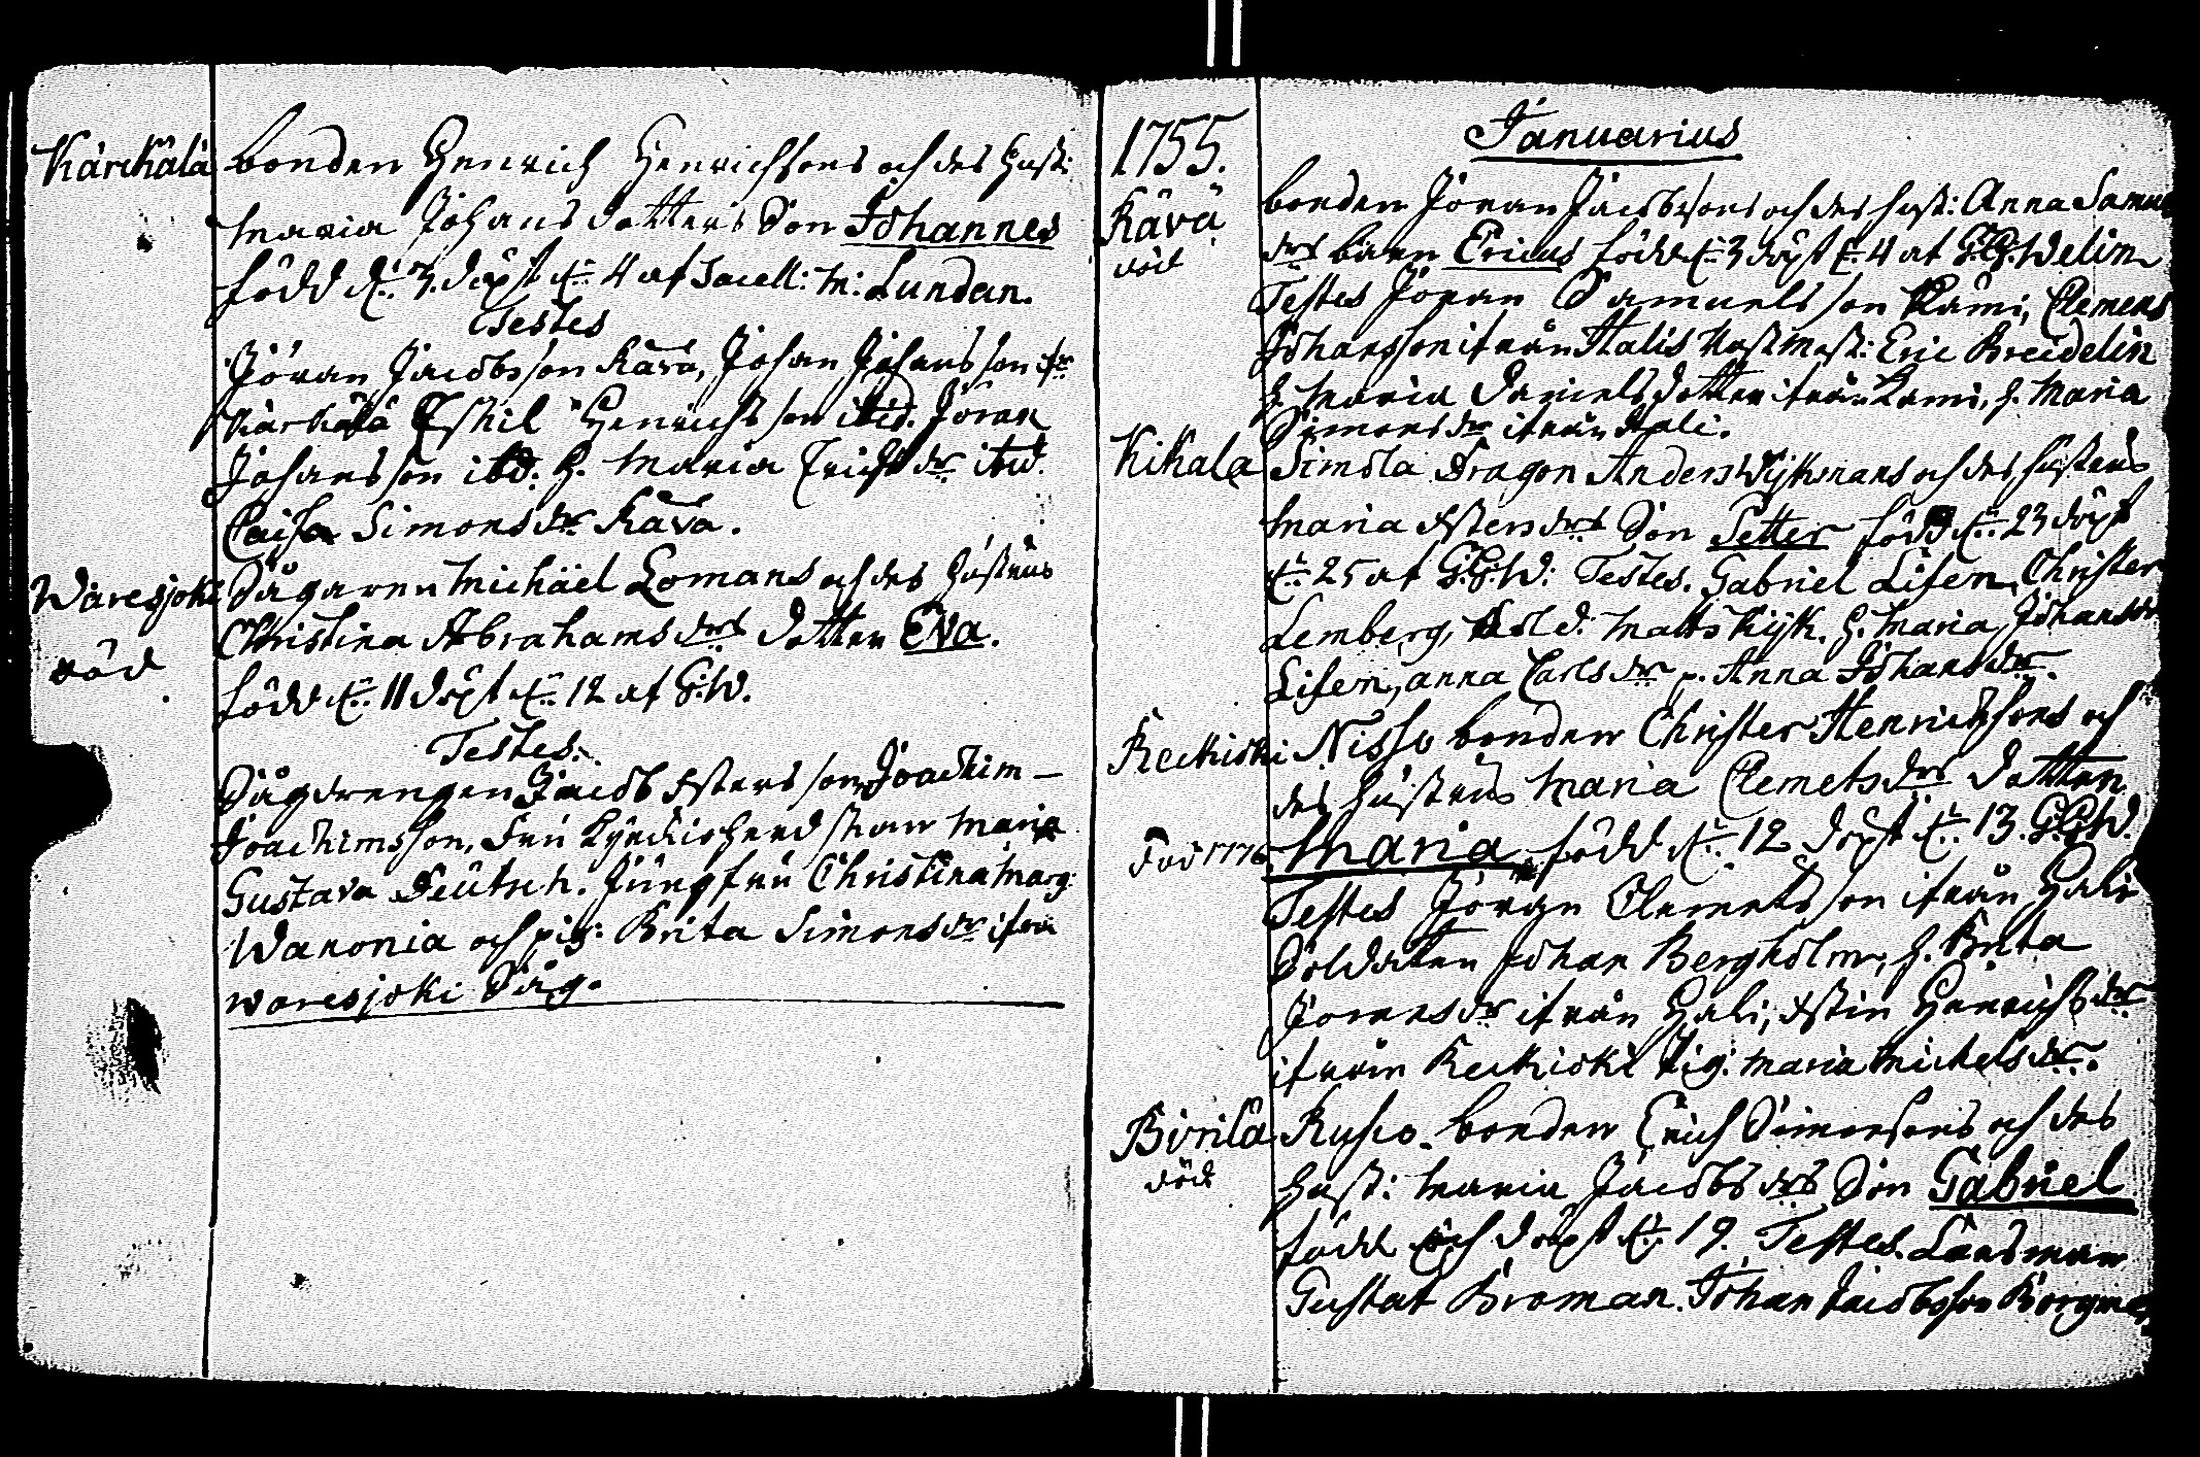 Kärckälä bonden Henrich Henrichsons och des hust:
Maria Johans dotters Son Johannes
född d: 3. döpt d: 4 af Sacell: M: Lundan.
Testes
Jöran Jacobsson Kävä, Johan Johansson fr
Kärckälä Eskil Henrichsson ibid. Jöran
Johansson ibd. H. Maria Erichs dr ibid.
Caisa Simons dr Kävä.
Waresjoki Sågaren Michäel Lomans och des hustrus
Christina Abrahams drs dotter Eva.
död
född d: 11 döpt d: 12 af G:W.
Testes.
Sågdrengen Jacob son Joachim
Joachimsson, Fru Maria
Gustava Deutsch. Jungfru Christina Marg:
Waronia och pig: Brita Simons dr ifrå
waresjoki Såg.
1755. Januarius
Kävä bonden Jöran Jacobsons och des hust: Anna Samu
död drs barn Ericus född d: 3 döpt d: 4 af G:G:Welin
Testes Jöran Samuelsson Rämi, Clemens
Johansson ifrån Halis Eric Breidelin
h Maria Daniels dotter ifrån Rämi, h. Maria
Simons dr ifrån Hali.
Kikala Simola Dragon Anders Wijkmans och des hustrus
Maria drs Son Petter född d: 23 döpt
d: 25 af G:G:W: Testes. Gabriel Lifen, Christer
Lemberg, Sold: Matts Kijk. h. Maria Johans dr
Lifen, anna Carls dr p. Anna Johans dr.
Keckioski Nisso bonden Christer Henrichsons och
des hustrus Maria Clemets drs dotter
död 1776 Maria född d: 12 döpt d: 13. G:G:W.
Testes Jöran Clemetsson ifrån Hali
Soldaten Johan Bergholm, h. Brita
Jörans dr ifrån Hali, Henrichs dr
ifrån Keckioski Pig: Maria Michels dr.
Pirila Rusko bonden Erich Simonsons och des
död hust: Maria Jacobs drs Son Gabriel
född och döpt d: 19. Testes. Länsman
Gustaf Broman. Johan Jacobsson